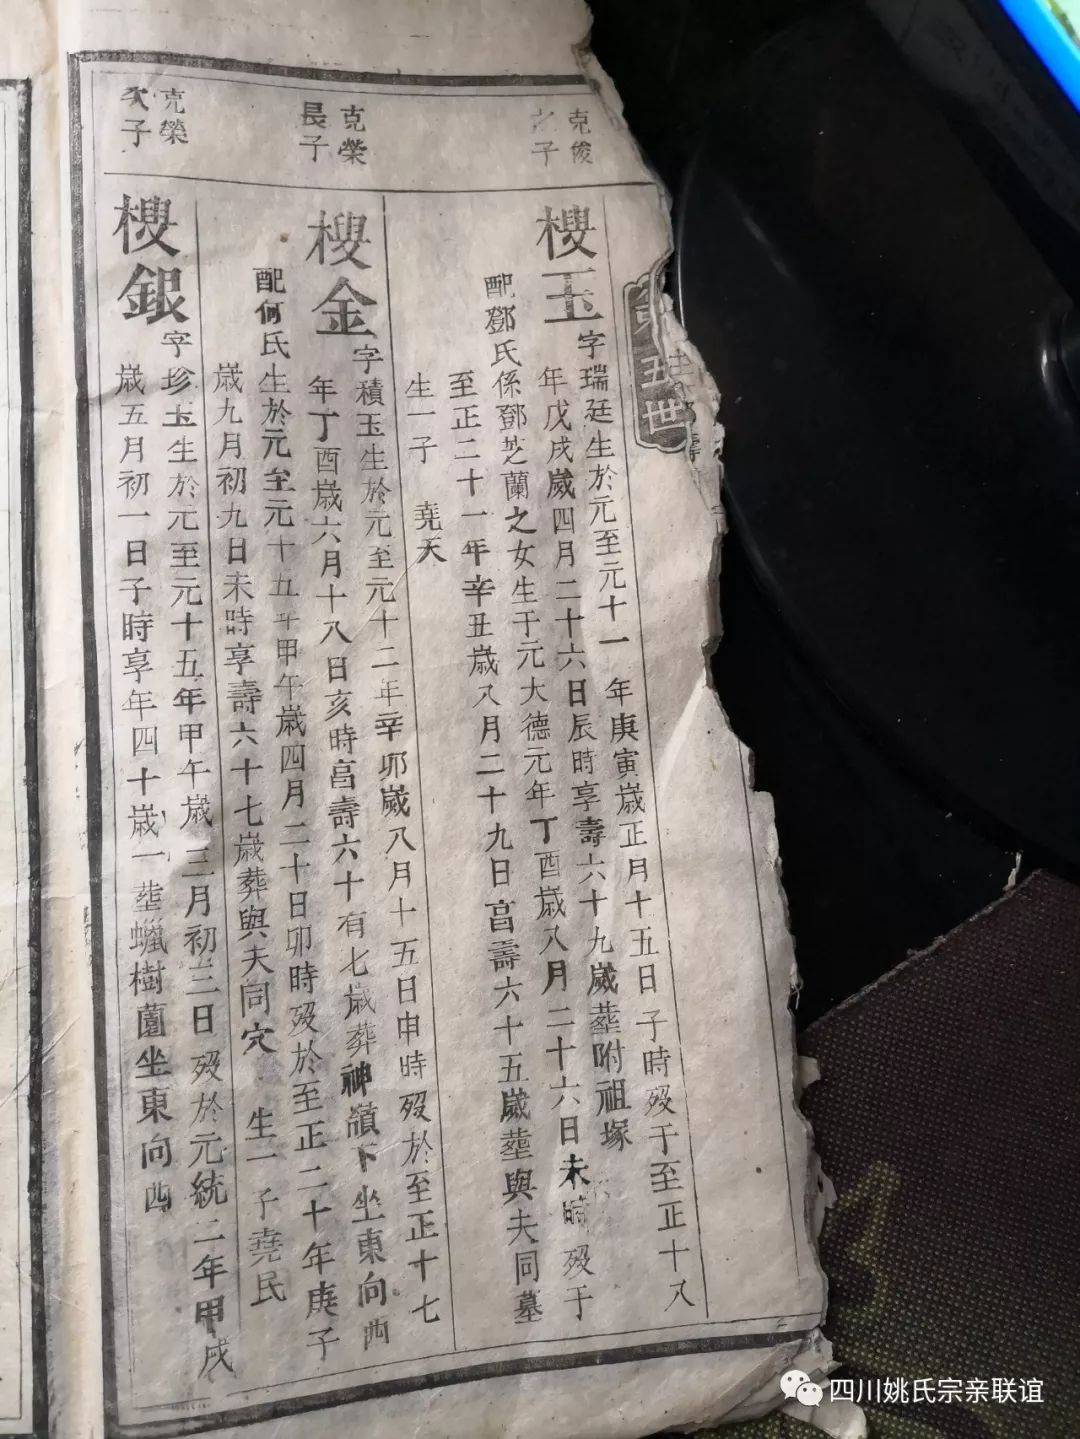 五世
克俊
之子
楔玉
字瑞廷生於元至元十一 年庚寅歲正月十五日子時殁于至正十八
年戊戌歲四月二十六日辰時享壽六十九歲塟附祖塚
配鄧氏係鄧芝蘭之女生于元大德元年丁酉歲八月二十六日未時殁于
至正二十一年辛丑歲八月二十九日亯壽六十五歲塟與夫同墓
生一子 堯天
克榮
長子
楔金
字積玉生於元至元十二年辛卯歲八月十五日申時殁於至正十七
年丁酉歲六月十八日亥時亯壽六十有七歲葬神嶺下坐東向西
配何氏生於元至元十五年甲午歲四月二十日卯時殁於至正二十年庚子
歲九月初九日未時享壽六十七歲葬與夫同穴 生一子堯民
克榮
次子
楔銀
字珍玉生於元至元十五年甲午歲三月初三日殁於元統二年甲戌
歲五月初一日子時享年四十歲一塟蠟樹園坐東向西
四川姚氏宗亲联谊